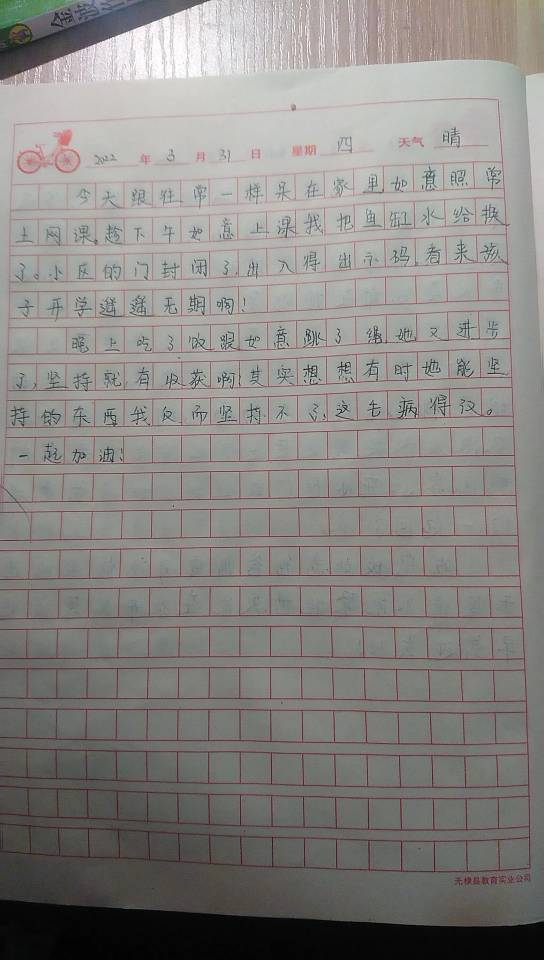 2022 年 3 月 31 日 星期 四 天气 晴
今天跟往常一样呆在家里如意照常
上网课。趁下午如意上课我把鱼缸水给换
了。小区的门封闭了,出入得出示码,看来孩
子开学遥遥无期啊!
晚上吃了饭跟如意跳了绳,她又进步
了,坚持就有收获啊!其实想想有时她能坚
持的东西我反而坚持不了,这毛病得改。
一起加油!
无棣县教育实业公司